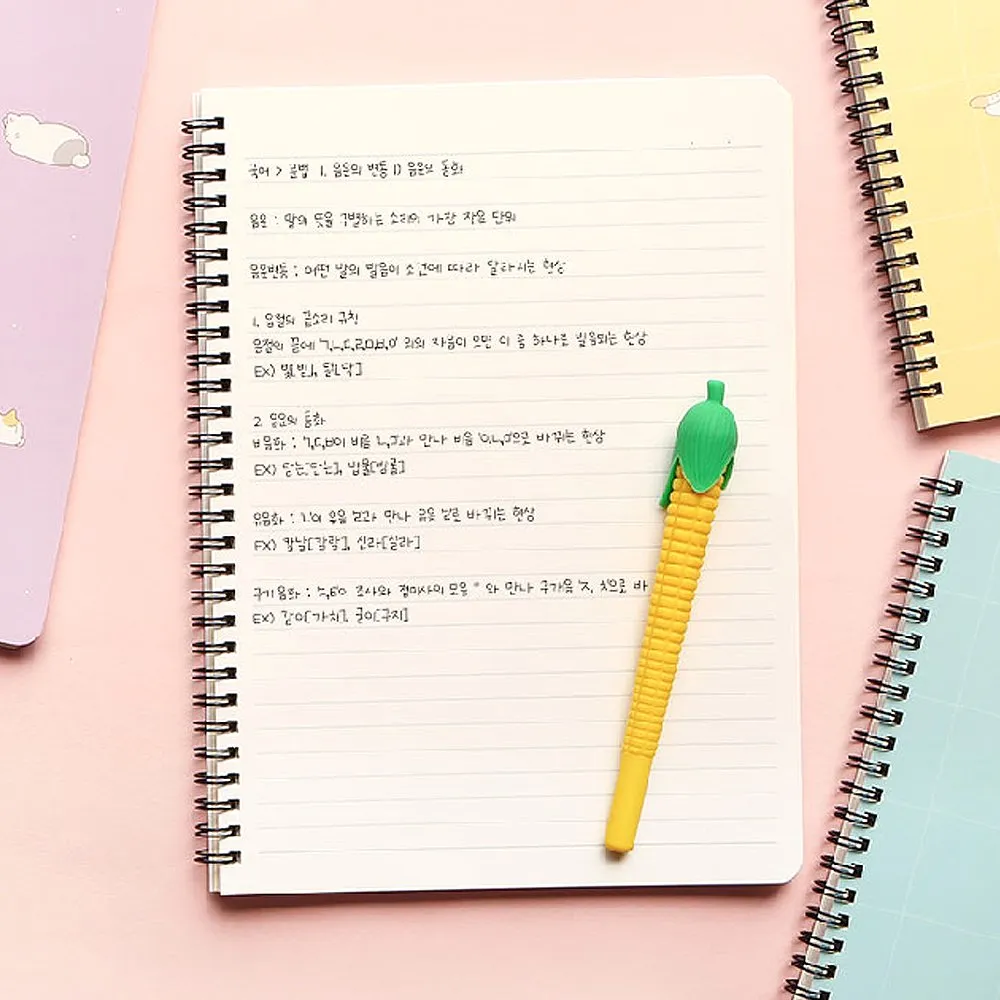 국어 > 문법 1. 음운의 변동 1) 음운의 동화
음운 : 말의 뜻을 구별하는 소리의 가장 작은 단위
음운변동 : 어떤 말의 발음이 조건에 따라 달라지는 현상
1. 음절의 끝소리 규칙
음절의 끝에 'ㄱ,ㄴ,ㄷ,ㄹ,ㅁ,ㅂ,ㅇ' 외의 자음이 오면 이 중 하나로 발음되는 현상
EX)
2. 음운의 동화
비음화 : 'ㄱ,ㄷ,ㅂ'이 비음 'ㄴ,ㅁ'과 만나 비음 'ㅇ,ㄴ,ㅁ'으로 바뀌는 현상
EX) 법물[범물]
유음화 : 'ㄴ'이 유음 'ㄹ'과 만나 유음 'ㄹ'로 바뀌는 현상
EX) 칼날[칼랄], 신라[실라]
구개음화 : 'ㄷ,ㅌ'이 조사와 접미사의 모음 'ㅣ'와 만나 구개음 'ㅈ, ㅊ'으로 바
EX) 같이[가치], 굳이[구지]